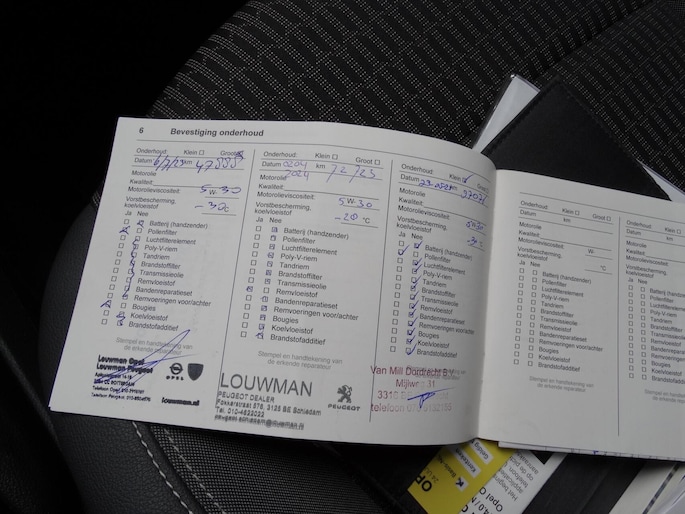 6 Bevestiging onderhoud
Onderhoud: Klein Groot
Datum 6/7/23 km
Motorolie
Kwaliteit:
Motorolieviscositeit: 5W-30
Vorstbescherming, koelvloeistof -30c
Ja Nee
Batterij (handzender)
Pollenfilter
Luchtfilterelement
Poly-V-riem
Tandriem
Brandstoffilter
Transmissieolie
Remvloeistof
Bandenreparatieset
Remvoeringen voor/achter
Bougies
Koelvloeistof
Brandstofadditief
Stempel en handtekening van
de erkende reparateur
Louwman Opel
Louwman Peugeot
OPEL
louwman.nl
Onderhoud: Klein Groot
Datum 0204 2024 km
Motorolie
Kwaliteit:
Motorolieviscositeit: 5W-30
Vorstbescherming,
koelvloeistof -20 °C
Ja Nee
Batterij (handzender)
Pollenfilter
Luchtfilterelement
Poly-V-riem
Tandriem
Brandstoffilter
Transmissieolie
Remvloeistof
Bandenreparatieset
Remvoeringen voor/achter
Bougies
Koelvloeistof
Brandstofadditief
Stempel en handtekening van
de erkende reparateur
LOUWMAN
PEUGEOT DEALER
Fokkerstraat 575, 3125 BE Schiedam
Tel. 010-4622022
PEUGEOT
Onderhoud: Klein Groot
Datum km
Motorolie
Kwaliteit:
Motorolieviscositeit: 5W30
Vorstbescherming,
koelvloeistof
Ja Nee
Batterij (handzender)
Pollenfilter
Luchtfilterelement
Poly-V-riem
Tandriem
Brandstoffilter
Transmissieolie
Remvloeistof
Bandenreparatieset
Remvoeringen voor/achter
Bougies
Koelvloeistof
Brandstofadditief
Van Mill Dordrecht B.V.
telefoon
Onderhoud: Klein Groot
Datum km
Motorolie
Kwaliteit:
Motorolieviscositeit: W-
Vorstbescherming,
koelvloeistof °C
Ja Nee
Batterij (handzender)
Pollenfilter
Luchtfilterelement
Poly-V-riem
Tandriem
Brandstoffilter
Transmissieolie
Remvloeistof
Bandenreparatieset
Remvoeringen voor/achter
Bougies
Koelvloeistof
Brandstofadditief
Stempel en handtekening van
de erkende reparateur
Onderhoud: Klein
Datum km
Motorolie
Kwaliteit:
Motorolieviscositeit:
Vorstbescherming,
koelvloeistof
Ja Nee
Batterij (handzender)
Pollenfilter
Luchtfilterelement
Poly-V-riem
Tandriem
Brandstoffilter
Transmissieolie
Remvloeistof
Bandenreparatieset
Remvoeringen voor/achter
Bougies
Koelvloeistof
Brandstofadditief
Stempel en handtekening van
de erkende reparateur